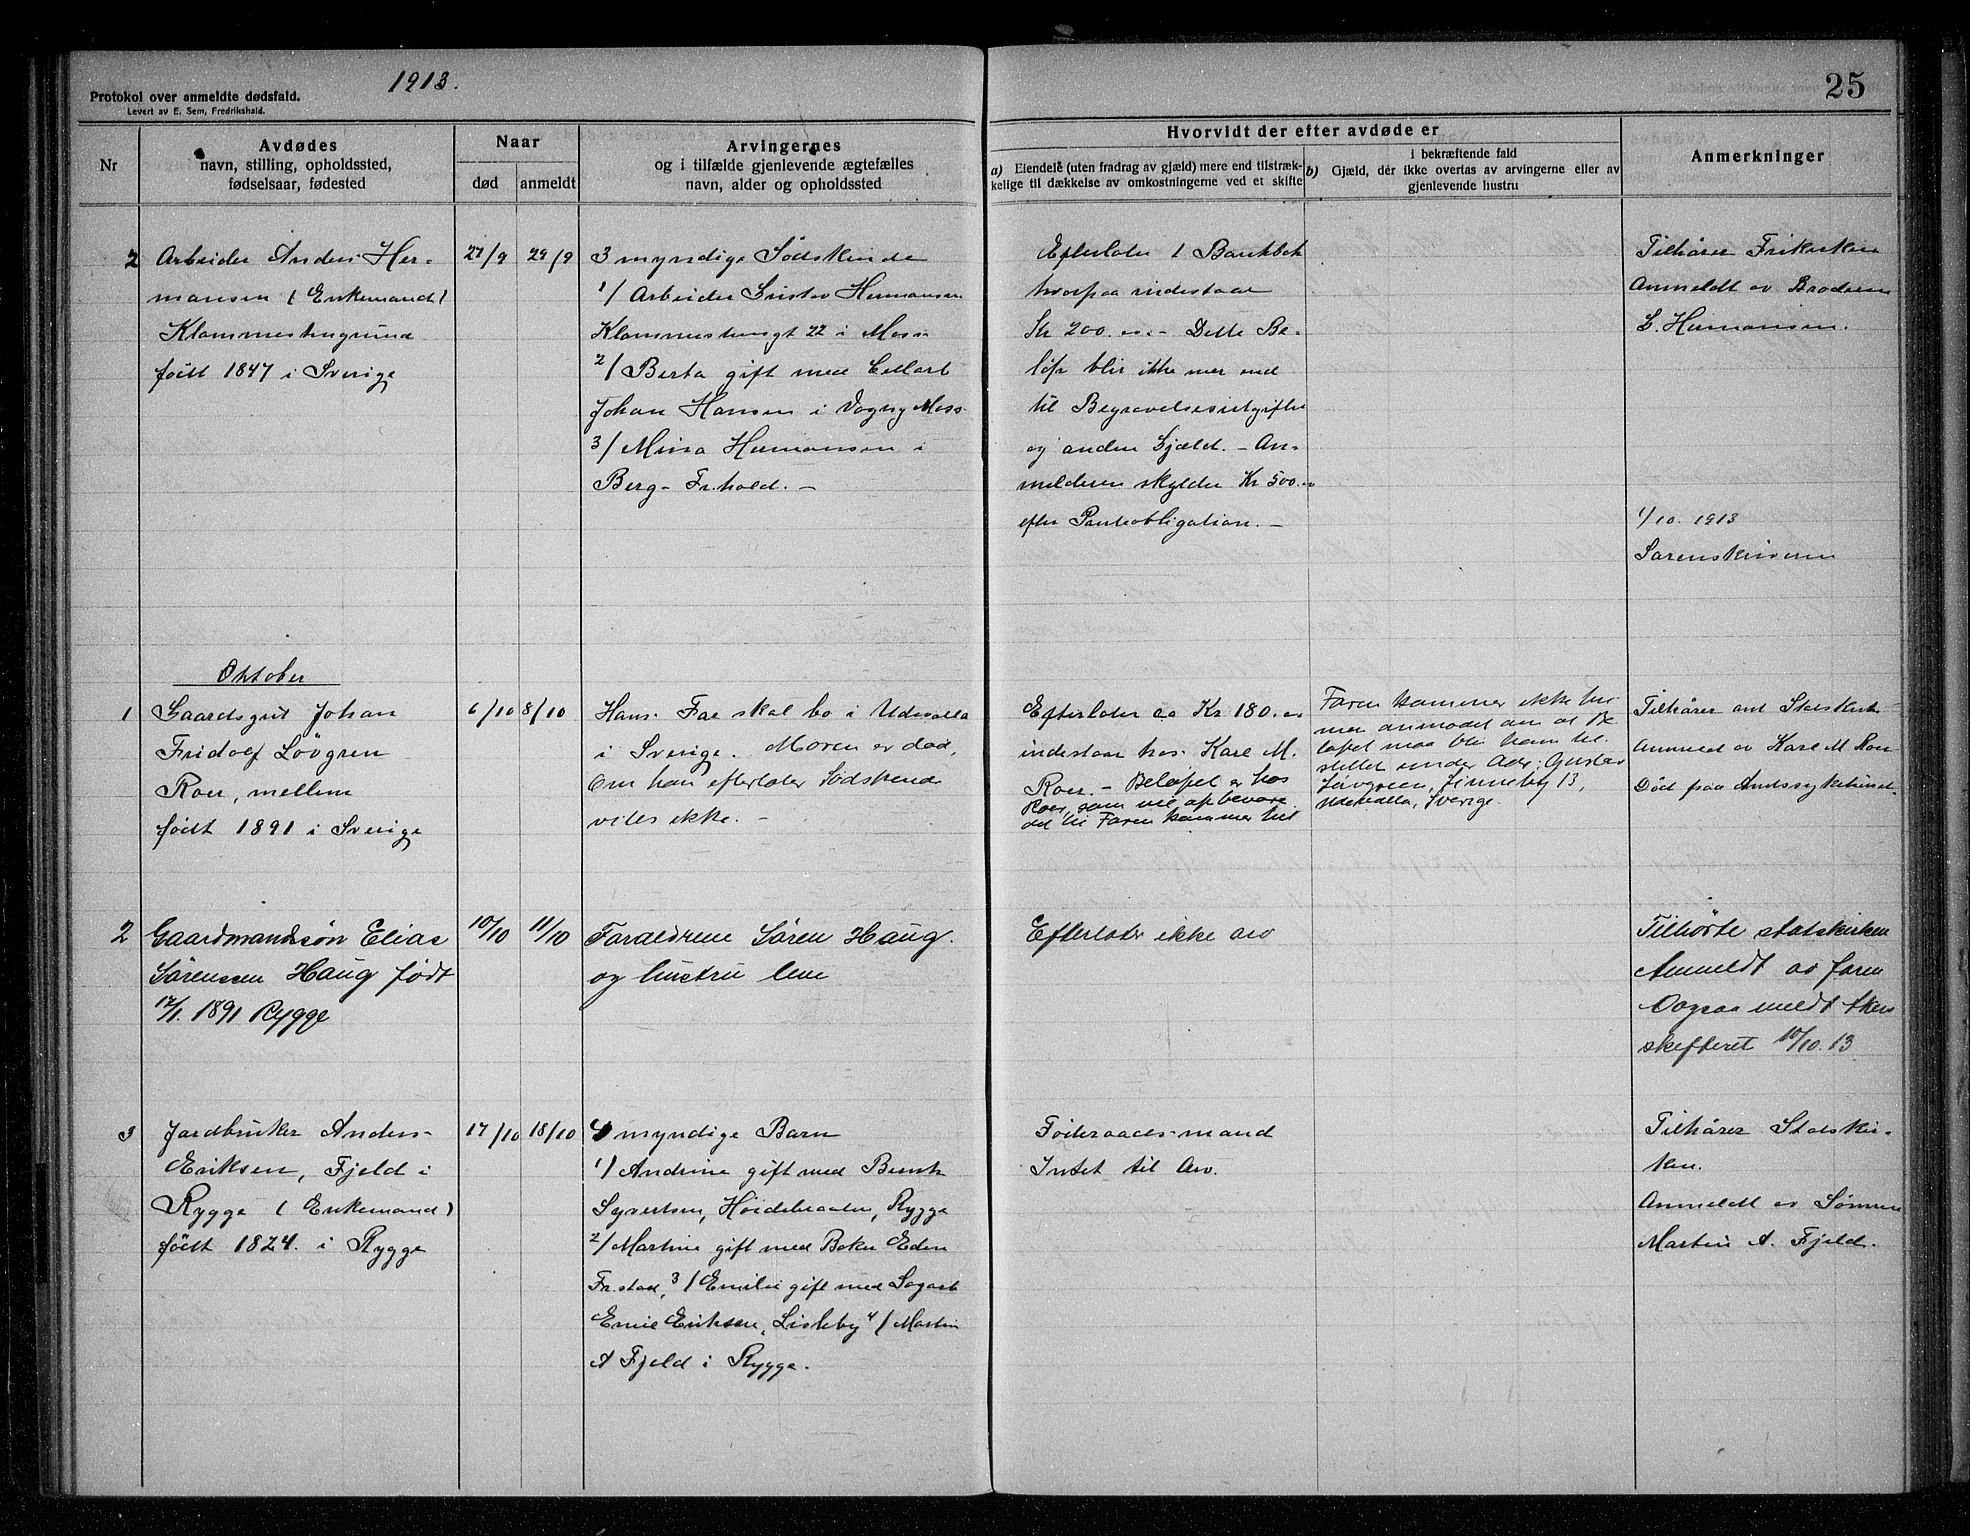 1913.
25
Protokol over anmeldte dødsfald.
Levert av E. Sem, Fredrikshald.
Nr
Avdødes
navn, stilling, opholdssted,
fødselsaar, fødested
Naar
død
anmeldt
Arvingernes
og i tilfælde gjenlevende ægtefælles
navn, alder og opholdssted
Hvorvidt der efter avdøde er
a) Eiendele (uten fradrag av gjæld) mere end tilstræk-
kelige til dækkelse av omkostningerne ved et skifte
i bekræftende fald
b) Gjæld, der ikke overtas av arvingerne eller av
gjenlevende hustru
Anmerkninger
2
Arbeider Anders Her-
mansen (Enkemand)
født 1847 i Sverige
27/9
29/9
3 myndige Sødskende
1/ Arbeider Gustav Hermansen
22 i Moss
2/ Berta gift med
Johan Hansen i Moss
3/ Mina Hermansen i
Berg - Fr.hald. -
Efterlater 1 Bankbok
hvorpaa indestaar
Kr 200.00 - Dette Be-
løp blir ikke mer end
til Begravelsesutgifter
og anden Gjæld. - An-
melderen skylder Kr 500.00
efter Panteobligation. -
Tilhører Frikirken
Anmeldt av Broderen
G. Hermansen.
1/10. 1913
Sorenskriveren
Oktober
1
Gaardsgut Johan
Fridolf Løvgren
Roer, mellem
født 1891 i Sverige
6/10
8/10
Hans Far skal bo i Udevalla
i Sverige. Moren er død,
Om han efterlater Sødskend
vites ikke. -
Efterlater ca Kr 180.00
indestaar hos Karl M.
Roer. - Beløpet er hos
Roer, som vil opbevare
det til Faren kommer hit
Faren kommer ikke hit
men anmodet om at Be
løpet maa bli ham til-
stillet under Adr: Gustav
Løvgreen, 13,
Udevalla, Sverige.
Tilhører ant Statskirk
Anmeld av Karl M Roer
Død paa Amtssykehuset.
2
Gaardmandssøn Elias
Sørenssen Haug født
17/1. 1891 Rygge
10/10
11/10
Foraldrene Søren Haug.
og hustru leve
Efterlater ikke arv
Tilhørte statskirken
Anmeldt av faren
Oogsaa meldt
skifteret 10/10. 13
3
Jordbruker Anders
Eriksen, Fjeld i
Rygge (Enkemand)
født 1824. i Rygge
17/10
18/10
4 myndige Barn
1/ Andrine gift med Bernh
Syvertsen, Høidebraaten, Rygge
2/ Martine gift med Baker Eden
Fr.stad, 3/ Emilie gift med Sagarb
Emil Eriksen, Lisleby 4/ Martin
A Fjeld i Rygge.
Føderaadsmand
Intet til Arv.
Tilhører Statskir-
ken.
Anmeldt av Sønnen
Martin A. Fjeld.